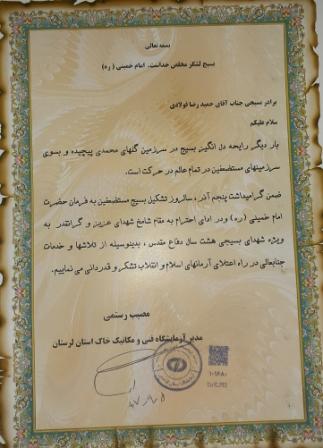 بسمه تعالی
بسیج لشکر مخلص خداست. امام خمینی (ره)
برادر بسیجی جناب آقای حمید رضا فولادی
سلام علیکم
بار دیگر رایحه دل انگیز بسیج در سرزمین گلهای محمدی پیچیده و بسوی
سرزمینهای مستضعفین در تمام عالم در حرکت است.
ضمن گرامیداشت پنجم آذر، سالروز تشکیل بسیج مستضعفین به فرمان حضرت
امام خمینی (ره) ودر ادای احترام به مقام شامخ شهدای عزیز و گرانقدر به
ویژه شهدای بسیجی هشت سال دفاع مقدس، بدینوسیله از تلاشها و خدمات
جنابعالی در راه اعتلای آرمانهای اسلام و انقلاب تشکر و قدردانی می نماییم.
مصیب رستمی
مدیر آزمایشگاه فنی و مکانیک خاک استان لرستان